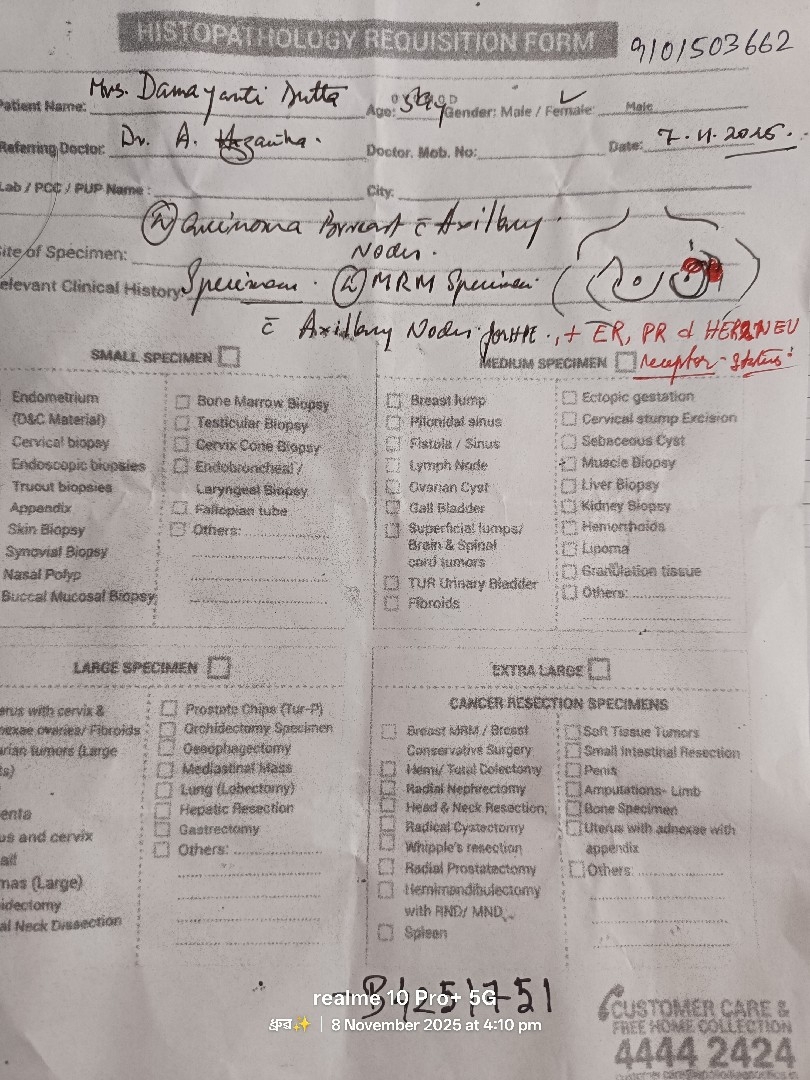 HISTOPATHOLOGY REQUISITION FORM
9101503662
Patient Name: Mrs. Damayanti Dutta Age: Gender: Male / Female: Male
Referring Doctor: Dr. A. Doctor. Mob. No: Date: 7.11.2025.
Lab / PCC / PUP Name : City:
Carcinoma Breast c̄ Axillary
Site of Specimen: Nodes.
Relevant Clinical History: Specimen. MRM Specimen.
c̄ Axillary Nodes for HPE., + ER, PR & HER2NEU
receptor - status.
SMALL SPECIMEN
Endometrium
(D&C Material)
Cervical biopsy
Endoscopic biopsies
Trucut biopsies
Appendix
Skin Biopsy
Synovial Biopsy
Nasal Polyp
Buccal Mucosal Biopsy
Bone Marrow Biopsy
Testicular Biopsy
Cervix Cone Biopsy
Endobroncheal /
Laryngeal Biopsy
Fallopian tube
Others:
MEDIUM SPECIMEN
Breast lump
Pilonidal sinus
Fistula / Sinus
Lymph Node
Ovarian Cyst
Gall Bladder
Superficial lumps/
Brain & Spinal
cord tumors
TUR Urinary Bladder
Fibroids
Ectopic gestation
Cervical stump Excision
Sebaceous Cyst
Muscle Biopsy
Liver Biopsy
Kidney Biopsy
Hemorrhoids
Lipoma
Granulation tissue
Others:
LARGE SPECIMEN
erus with cervix &
nexae ovaries/ Fibroids
arian tumors (Large
ts)
enta
us and cervix
mas (Large)
idectomy
al Neck Dissection
Prostate Chips (Tur-P)
Orchidectomy Specimen
Oesophagectomy
Mediastinal Mass
Lung (Lobectomy)
Hepatic Resection
Gastrectomy
Others:
EXTRA LARGE
CANCER RESECTION SPECIMENS
Breast MRM / Breast
Conservative Surgery
Hemi/ Total Colectomy
Radial Nephrectomy
Head & Neck Resection,
Radical Cystectomy
Whipple's resection
Radial Prostatectomy
Hemimandibulectomy
with RND/ MND
Spleen
Soft Tissue Tumors
Small Intestinal Resection
Penis
Amputations- Limb
Bone Specimen
Uterus with adnexae with
appendix
Others:
B/4251751
realme 10 Pro+ 5G
ध्रुव✨ | 8 November 2025 at 4:10 pm
CUSTOMER CARE &
FREE HOME COLLECTION
4444 2424